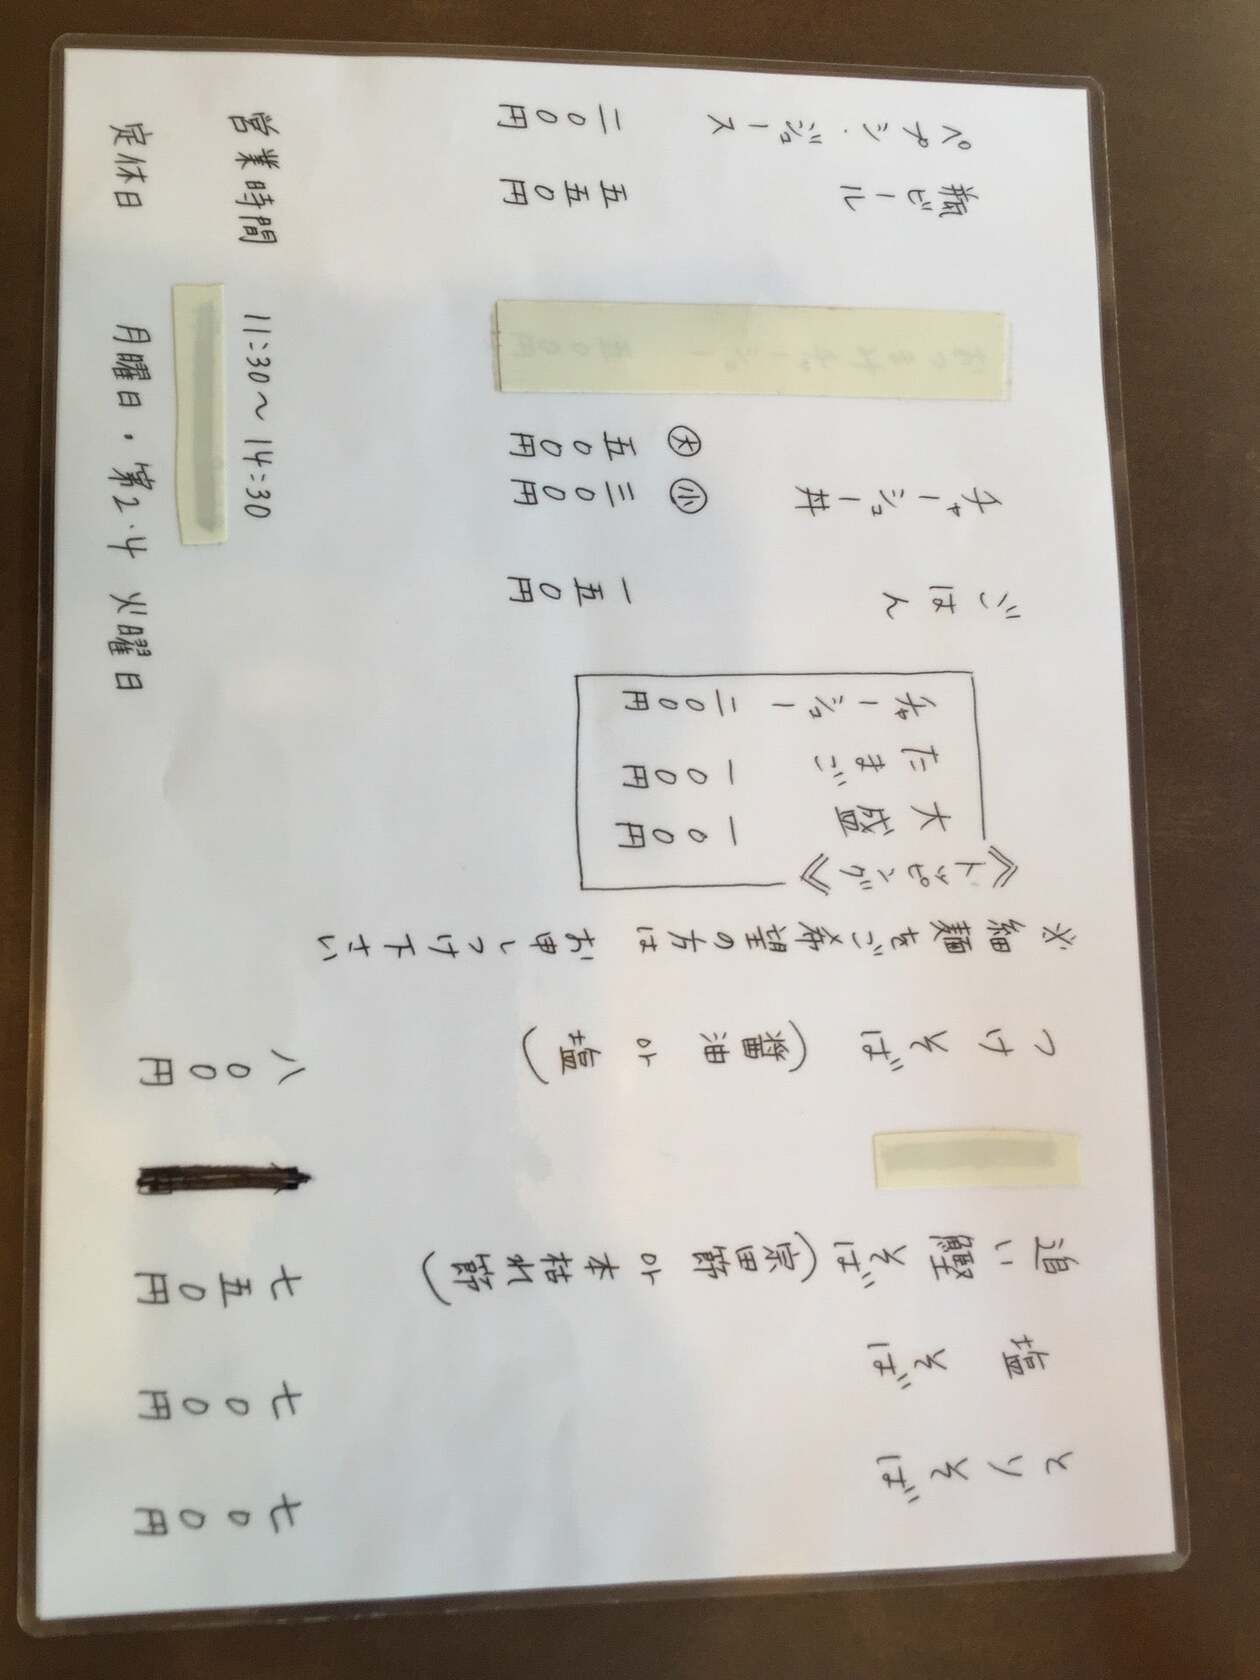 とりそば 七〇〇円
塩そば 七〇〇円
追い鰹そば(宗田節 or 本枯れ節) 七五〇円
つけそば(醤油 or 塩) 八〇〇円
※細麺をご希望の方は お申しつけ下さい
《トッピング》
大盛 一〇〇円
たまご 一〇〇円
チャーシュー 二〇〇円
ごはん 一五〇円
チャーシュー丼 ㊛ 三〇〇円
㊤ 五〇〇円
瓶ビール 五五〇円
ペプシ・ジュース 二〇〇円
営業時間 11:30〜14:30
定休日 月曜日・第2・4 火曜日